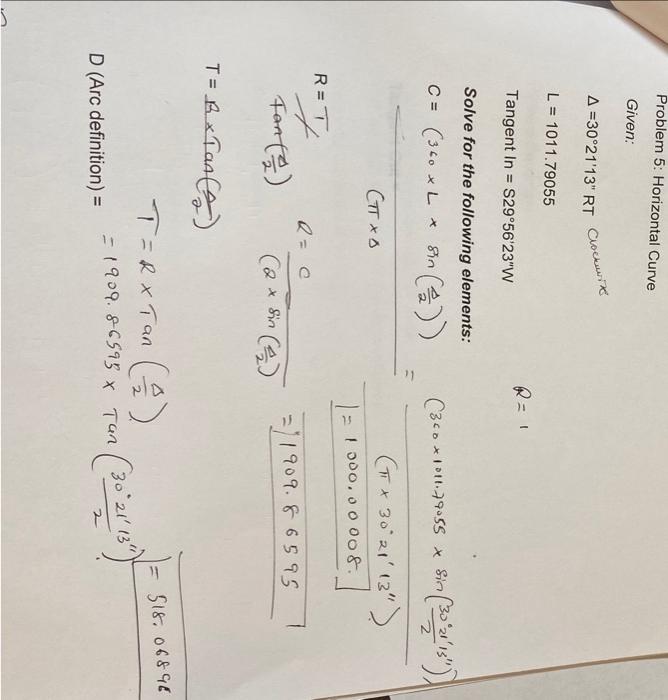 Problem 5: Horizontal Curve
Given:
Δ =30°21'13" RT Clockwise
L = 1011.79055
Tangent In = S29°56'23"W R = 1
Solve for the following elements:
C = (360 x L x sin(Δ/2)) / (π x Δ) = (360 x 1011.79055 x sin(30°21'13"/2)) / (π x 30°21'13")
= 1000.00008.
R = T / Tan(Δ/2) R = C / (2 x sin(Δ/2)) = 1909.86595
T = R x Tan(Δ/2)
T = R x Tan(Δ/2)
= 1909.86595 x Tan(30°21'13"/2) = 518.06896
D (Arc definition) =